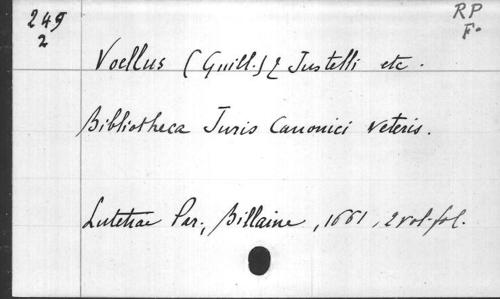 249
2
RP
F.
Voellus (Guill.) & Justelli etc.
Bibliotheca Juris Canonici veteris.
Lutetiae Par., Billaine, 1661, 2 vol. fol.